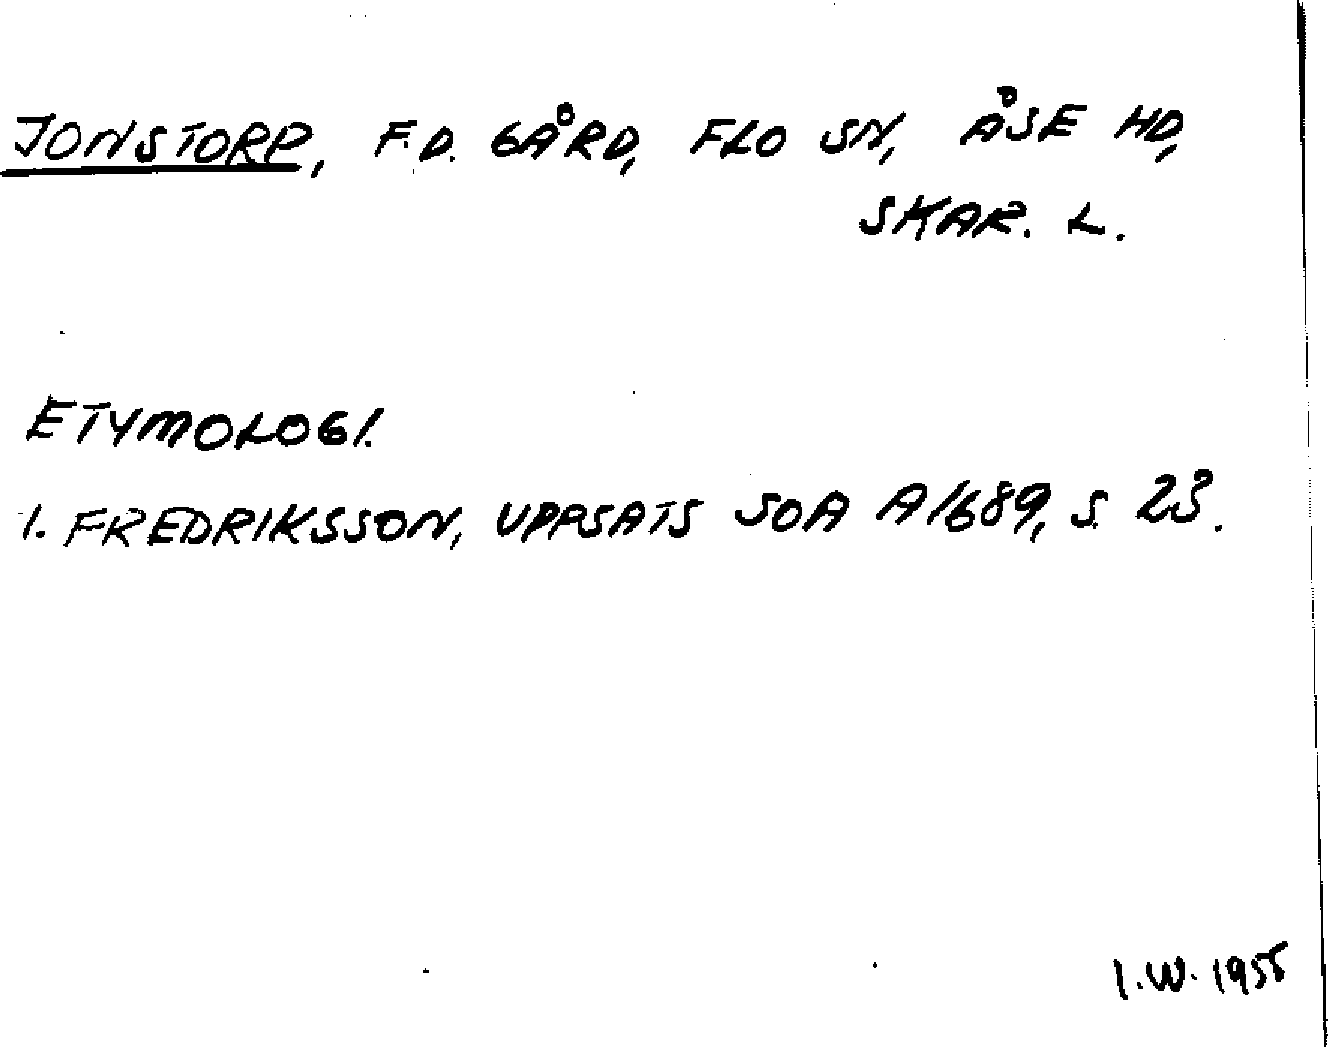 JONSTORP, F.D. GÅRD, FLO SN, ÅSE HD,
SKAR. L.
ETYMOLOGI.
1. FREDRIKSSON, UPPSATS SOA A1689, S. 23.
I.W. 1955